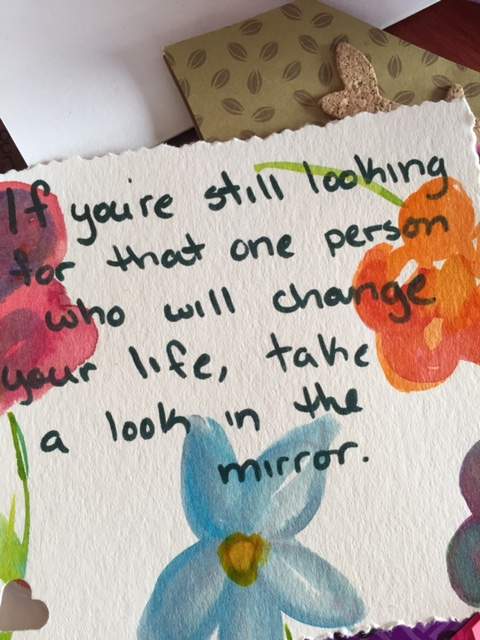 If you're still looking
for that one person
who will change
your life, take
a look in the
mirror.